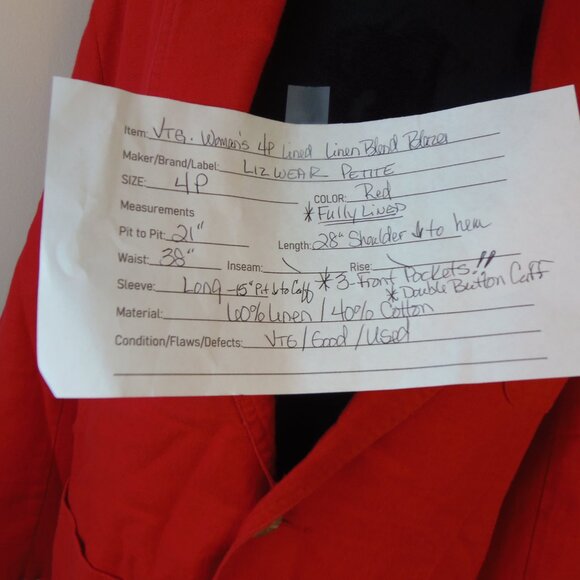 Item: VTG. Women's 4P Lined Linen Blend Blazer
Maker/Brand/Label: LIZWEAR PETITE
SIZE: 4P COLOR: Red
Measurements * Fully LINED
Pit to Pit: 21" Length: 28" Shoulder ↓ to hem
Waist: 38" Inseam: Rise:
* 3-Front Pockets!!
Sleeve: Long -15" Pit ↓ to Cuff * Double Button Cuff
Material: 60% Linen / 40% Cotton
Condition/Flaws/Defects: VTG/Good/Used